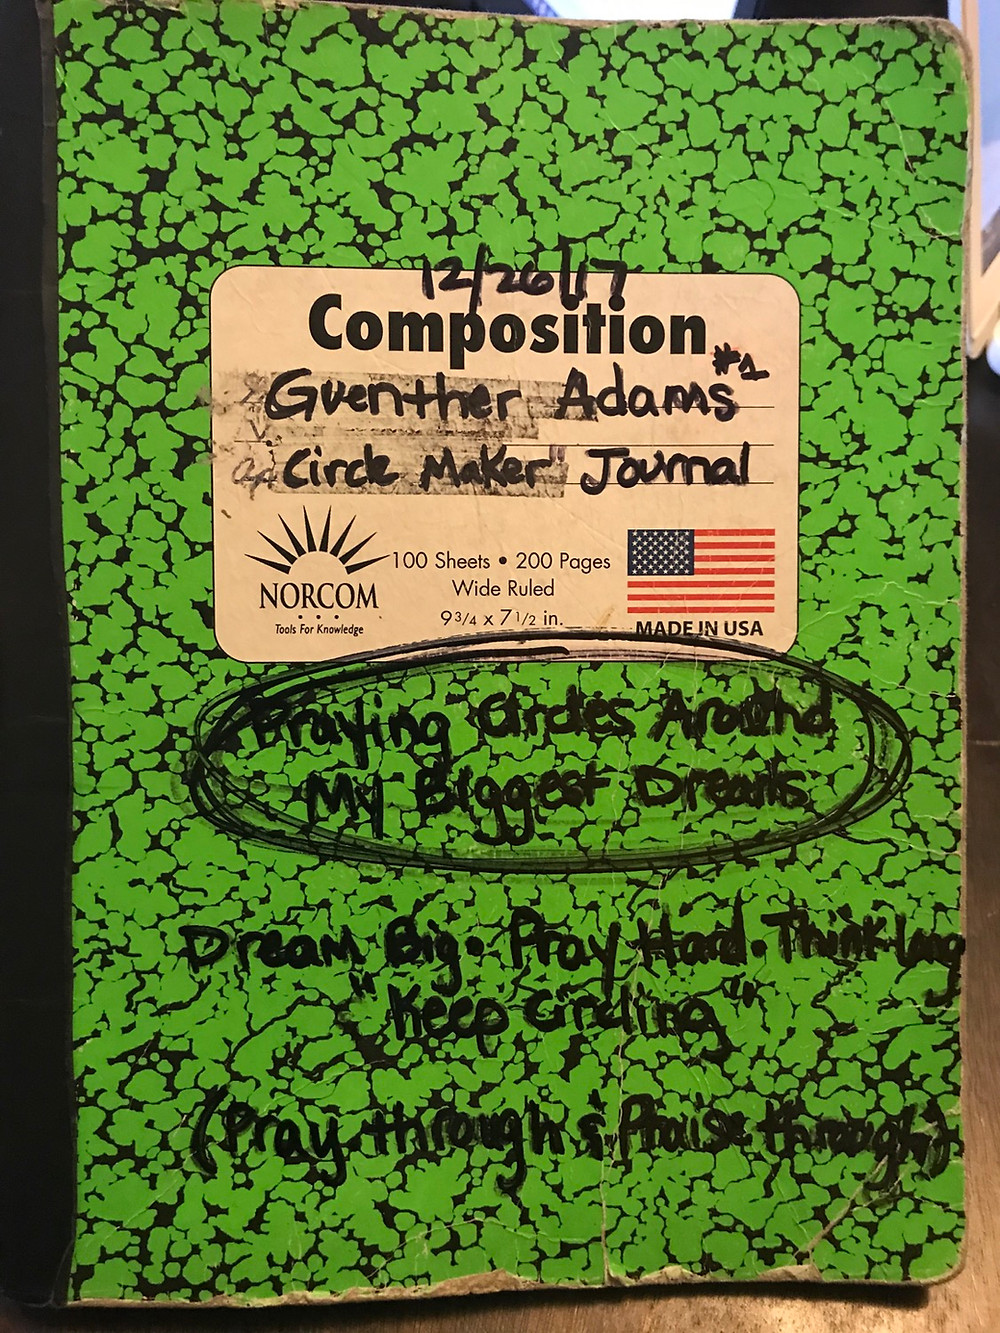 12/26/17
Composition
#1
Guenther Adams
"Circle Maker" Journal
NORCOM
Tools For Knowledge
100 Sheets • 200 Pages
Wide Ruled
9 3/4 x 7 1/2 in.
MADE IN USA
Praying Circles Around
My Biggest Dreams
Dream Big. Pray Hard. Think Long
"Keep Circling"
(Pray through & Praise through)